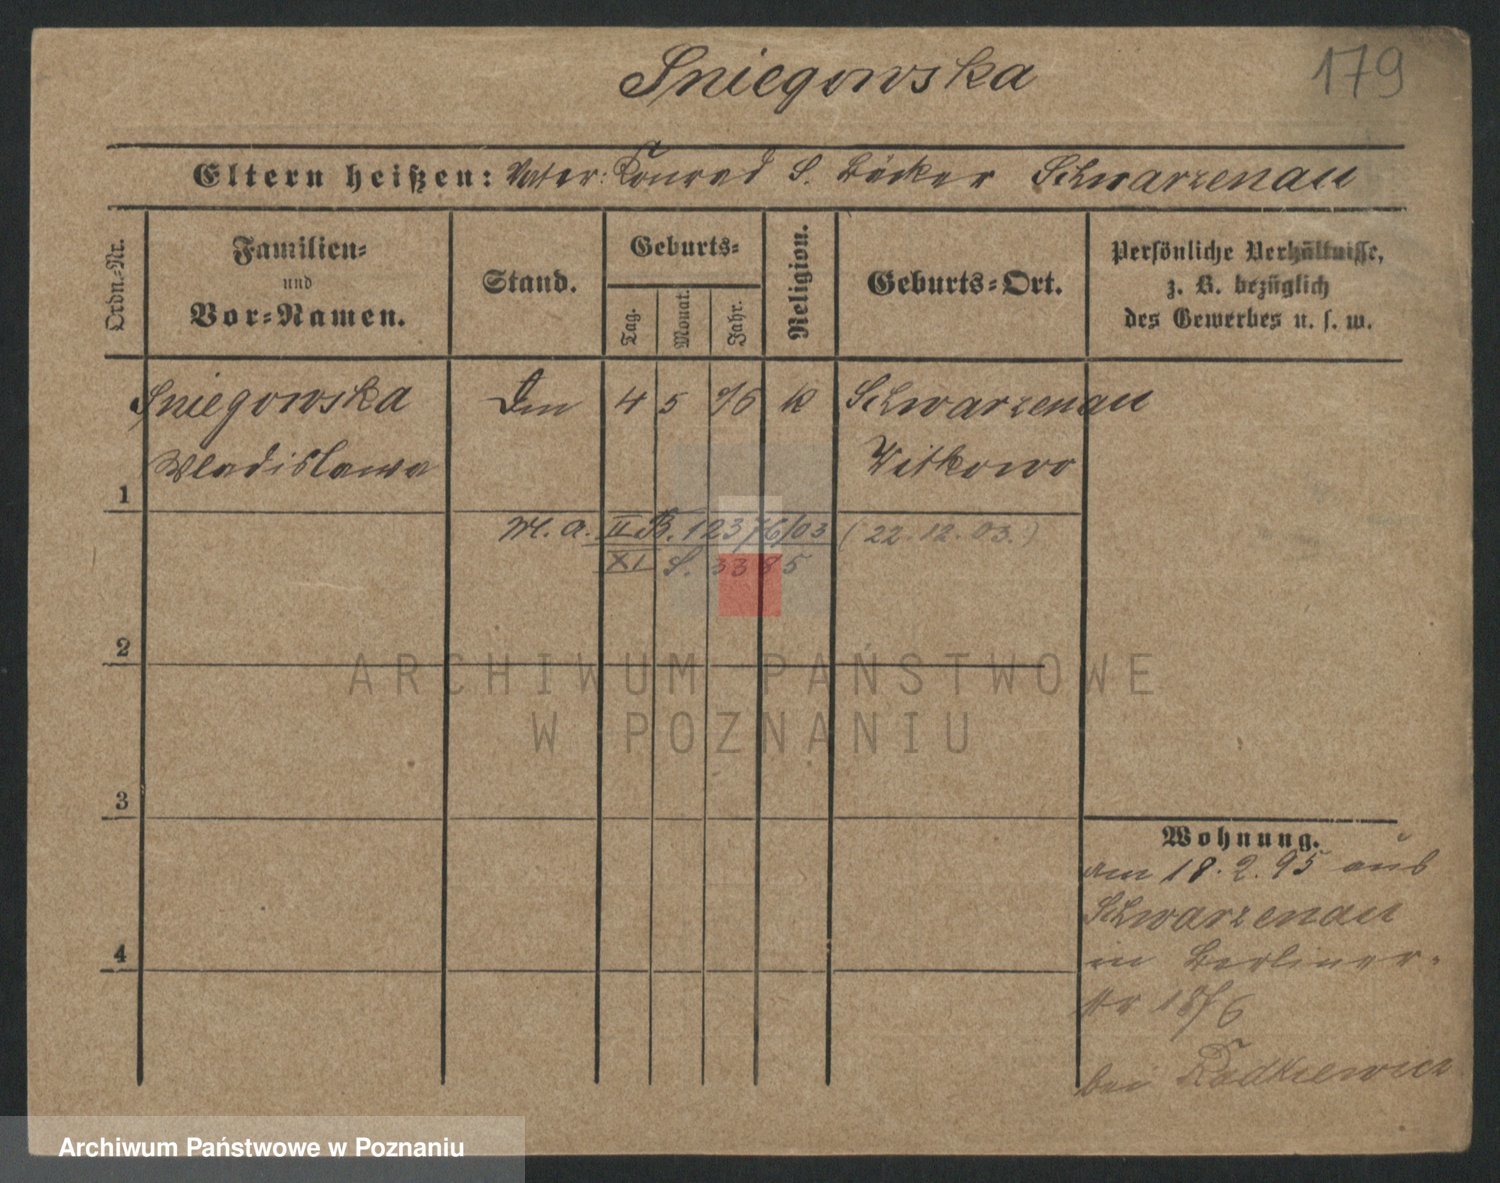 Sniegowska
179
Eltern heißen: Vater: Konrad S. Bäcker Schwarzenau
Ordn.-Nr.
Familien-
und
Vor-Namen.
Stand.
Geburts-
Tag.
Monat.
Jahr.
Religion.
Geburts-Ort.
Persönliche Verhältnisse,
z. B. bezüglich
des Gewerbes u. s. w.
Sniegowska 4 5 76 K Schwarzenau
Wladislawa Witkowo
1
M. a. II B. 12376/03 (22.12.03.)
XI S. 3385
2
ARCHIWUM PAŃSTWOWE
W POZNANIU
3
Wohnung.
am 18.2.95 aus
Schwarzenau
4
in Berliner-
str
bei Radkiewicz
Archiwum Państwowe w Poznaniu